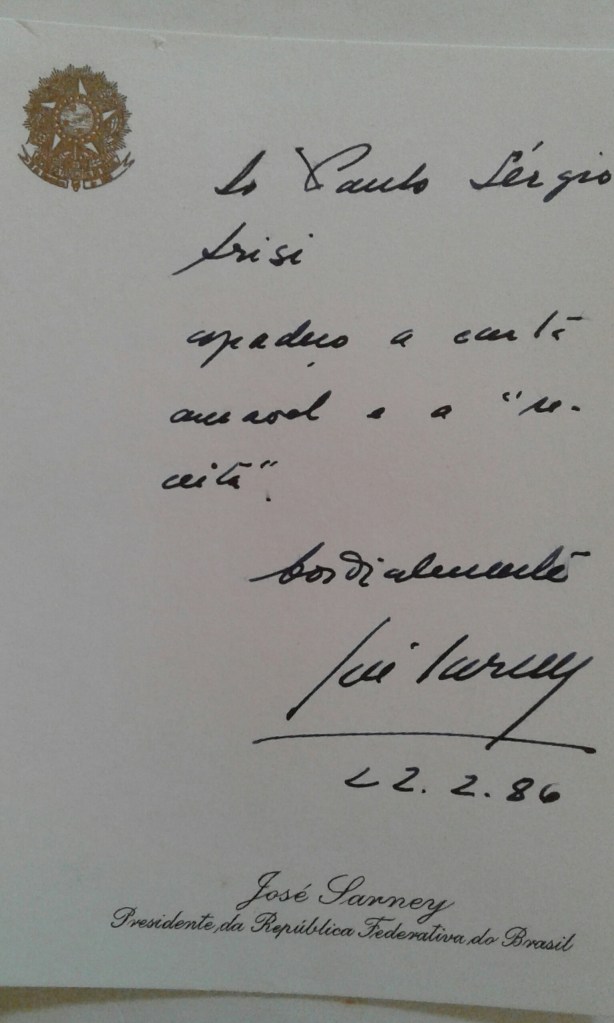 Ao Paulo Sérgio
Arisi
agradeço a carta
amavel e a "re-
ceita".
Cordialmente
José Sarney
22.2.86
José Sarney
Presidente da República Federativa do Brasil